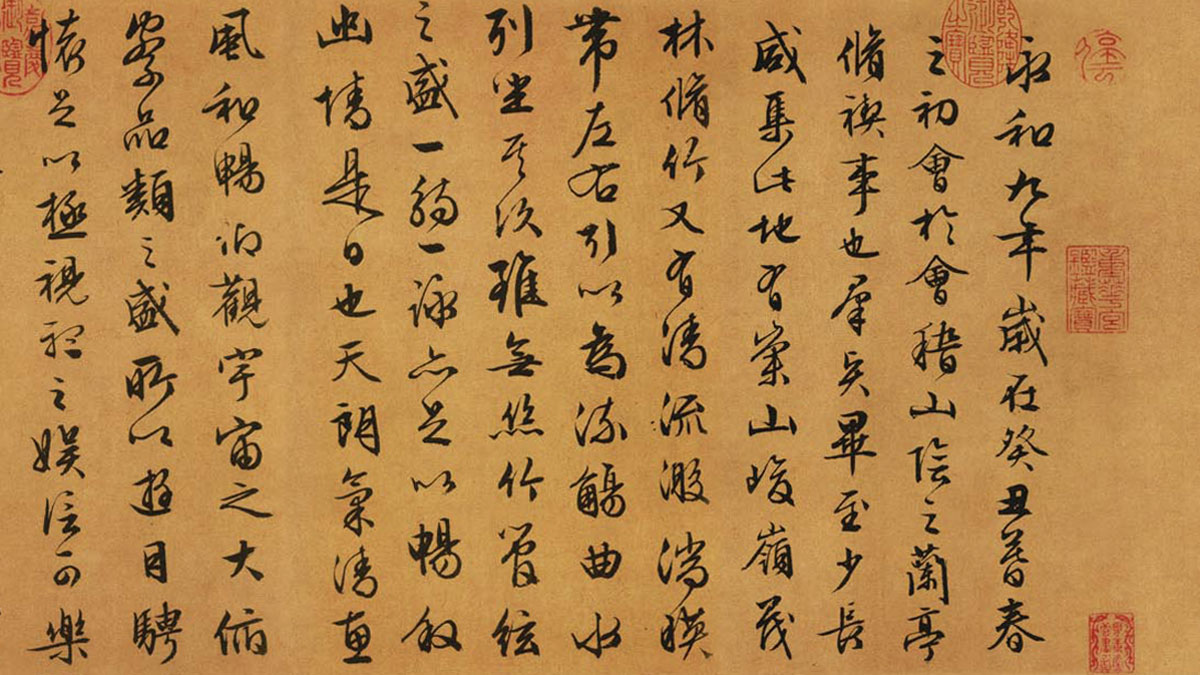 永和九年歲在癸丑暮春
之初會於會稽山陰之蘭亭
脩禊事也羣賢畢至少長
咸集此地有崇山峻嶺茂
林脩竹又有清流激湍暎
帶左右引以為流觴曲水
列坐其次雖無絲竹管絃
之盛一觴一詠亦足以暢敘
幽情是日也天朗氣清惠
風和暢仰觀宇宙之大俯
察品類之盛所以遊目騁
懷足以極視聽之娛信可樂
重華宮鑑藏寶